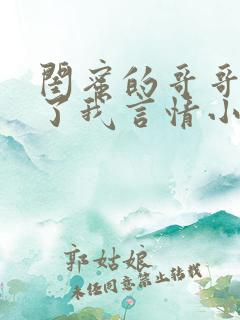 闺蜜的哥哥
了我言情小
郭姑娘
未经同意禁止转载